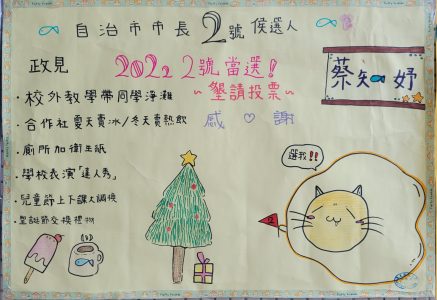 自治市市長 2號 候選人
政見
2022 2號當選！
~墾請投票~
感♡謝
蔡矢🐟妤
·校外教學帶同學淨灘
·合作社夏天賣冰/冬天賣熱飲
·廁所加衛生紙
·學校表演「達人秀」
·兒童節上下課大調換
·聖誕節交換禮物
選我!!
2